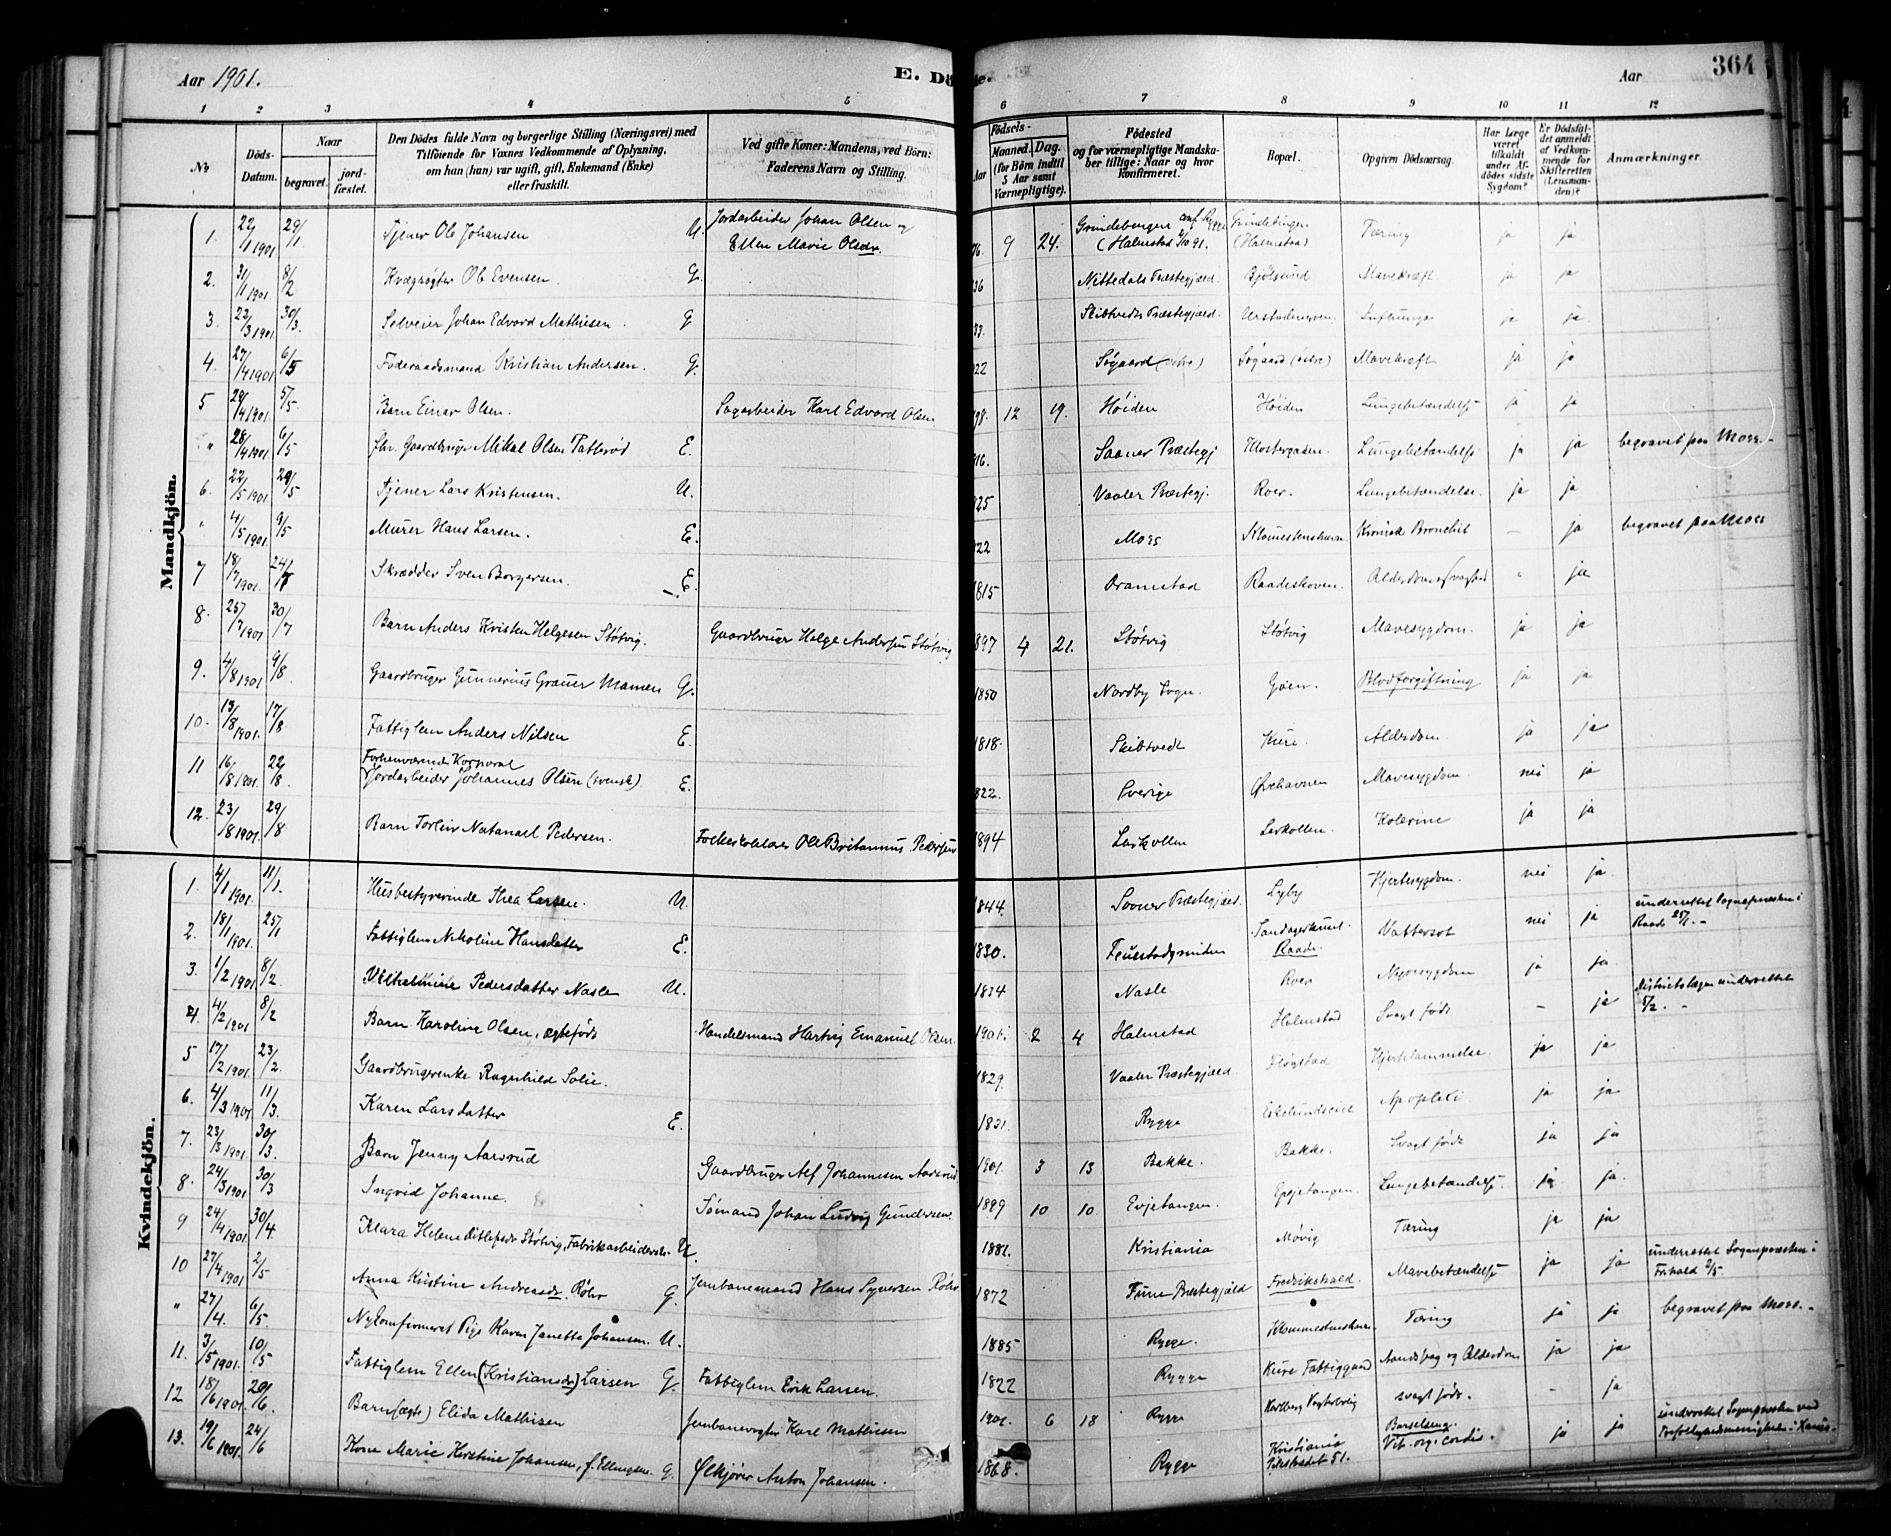 Aar 1901.
E. Dö
de.
Aar
364
1 2 3 4 5 6 7 8 9 10 11 12
No
Döds-Datum.
Naar
begravet.
jord-fæstet.
Den Dödes fulde Navn og borgerlige Stilling (Næringsvei) med
Tilföiende for Voxnes Vedkommende af Oplysning,
om han (hun) var ugift, gift, Enkemand (Enke)
eller fraskilt.
Ved gifte Koner: Mandens, ved Börn:
Faderens Navn og Stilling.
Födsels-
Aar
Maaned.
Dag.
(for Börn indtil
5 Aar samt
Værnepligtige).
Födested
og for værnepligtige Mandska-
ber tillige: Naar og hvor
konfirmeret.
Bopæl.
Opgiven Dödsaarsag.
Har Læge
været
tilkaldt
under Af-
dödes sidste
Sygdom?
Er Dödsfal-
det anmeldt
af Vedkom-
mende for
Skifteretten
(Lensman-
den)?
Anmærkninger.
Mandkjön.
1. 22/1 1901 29/1 Tjener Ole Johansen U. Jordarbeider Johan Olsen og
Ellen Marie Olsdr. 76. 9 24. Grindebergen conf. Rygge
(Halmstad (Halmstad) Tæring ja ja
2. 31/1 1901 8/2 Kvægrøgter Ole Evensen G. 36 Nittedals Præstegjæld. Bjölsund Mavekræft ja ja
3. 22/3 1901 30/3. Johan Edvard Mathisen. G 33. Skibtvedts Præstegjæld. ja ja
4. 27/4 1901 6/5 Föderaadsmand Kristian Andersen. G. 22 Søgaard Søgaard (østre) Mavekræft ja ja
5 29/4 1901 5/5. Barn Einar Olsen. Sagarbeider Karl Edvard Olsen 98. 12 19. Höiden Höiden Lungebetændelse ja ja
" 28/4 1901 6/5 fhv. Gaardbruger Mikal Olsen Patterød E. 16. Saaner Præstegj Klostergaden. Lungebetændelse ja ja begravet paa Moss.
6. 22/5 1901 29/5 Tjener Lars Kristensen. U. 25 Vaaler Præstegj. Roer. Lungebetændelse. ja ja
" 4/5 1901 9/5 Murer Hans Larsen. E. 22 Moss Kronisk Bronchit - ja begravet paa Moss
7 18/7 1901. 24/7 Skrædder Sven Borgersen. E. 1815 Dramstad Raadeskoven. Alderdomssvaghed " ja
8. 25/7 1901 30/7 Barn Anders Kristen Helgesen Støtvig. Gaardbruger Helge Andersen Støtvig 897 4 21. Støtvig Støtvig Mavesygdom. ja ja
9. 4/8 1901 9/8 Gaardbruger Gunnerius Grauer Mamen G. 1850 Nordby Sogn. Gipen. Blodforgiftning ja ja
10. 13/8 1901. 17/8 Fattiglem Anders Nilsen E. 1818. Skibtvedt Kure. Alderdom. ja ja
Forhenværende Korporal
11 16/8 1901 22/8. Jordarbeider Johannes Olsen (svensk) E. 822. Sverige Mavesygdom. nei ja
12. 23/8 1901. 29/8 Barn Torleiv Natanael Pedersen. Folkeskolelærer Ole Britannus Pedersen 1894 Larkollen Larkollen. Kolerine ja ja
Kvindekjön.
1. 4/1 1901. 11/1. Husbestyrerinde Thea Larsen. U. 1844. Sooner Præstegjæld. Lyby Hjertesygdom. nei ja.
2. 18/1 1901. 25/1 Fattiglem Nikoline Hansdatter E. 1830.
Raade. Vattersot nei ja underrettet Sognepræsten i
Raade 25/1. -
3. 1/2 1901 8/2 Vilhelmine Pedersdatter Nasle U. 1834 Nasle Roer Nyresygdom ja ja.
4. 4/2 1901 8/2 Barn Karoline Olsen, ægtefödt Handelsmand Hartvig Emanuel Olsen 1901. 2 4 Halmstad Halmstad Svagt födt - ja Distriktslægen underrettet
5/2. -
5 17/2 1901. 23/2. Gaardbrugerenke Ragnhild Solie. 1829. Vaaler Præstegjæld. Hjertelammelse. ja ja
6. 4/3 1901 11/3. Karen Larsdatter E. 1831. Rygge Apoplexi. ja ja
7. 23/3 1901. 30/3. Barn Jenny Aarsrud Gaardbruger Alf Johannesen Aarsrud 1901. 3 13 Bakke. Bakke. Svagt födt ja ja
8. 24/3 1901. 30/3 Ingrid Johanne. Sömand Johan Ludvig Gundersen. 1899 10 10 Evjetangen. Evjetangen. Lungebetændelse. ja ja.
9 24/4 1901. 30/4 Klara Helene Ditlefsdr Støtvig, Fabrikarbeiderske U. 1881. Kristiania Møvig Tæring ja ja
10 27/4 1901 2/5 Anna Kristine Andreasdr. Röhr G. Jernbanemand Hans Syversen Röhr 1872 Præstegjæld Fredrikshald. Mavebetændelse ja ja underrettet Sognepræsten i
Frhald 2/5
" 27/4. 6/5. Nykonfirmeret Pige Karen Janetta Johansen. U. 1885 Rygge. Tæring ja ja begravet paa Moss. -
11. 3/5 1901. 10/5 Fattiglem Ellen (Kristiansdr) Larsen G. Fattiglem Erik Larsen. 1822 Rygge Kure Fattiggaard og Alderdom ja ja
12 18/6 1901. 20/6. Barn (ægte) Elida Mathisen Jernbanevogter Karl Mathisen 1901. 6 18 Rygge Vogterbolig svagt födt. - ja
13. 19/6 1901. 24/6 Kone Marie Kerstine Johansen, f. Ellingsen. G. Ølkjører Anton Johansen. 1868. Rygge Kristiania
51. Barselseng.
Vit. org. cordis. ja ja underrettet Sognepræsten ved